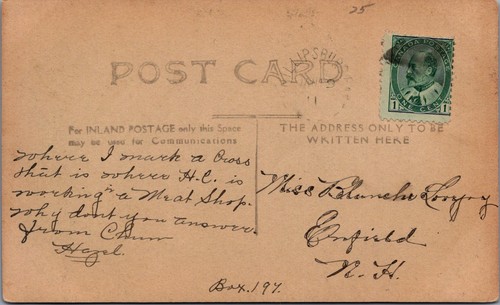 25
CANADA POSTAGE
1 ONE CENT 1
POST CARD
For INLAND POSTAGE only this Space
may be used for Communications
THE ADDRESS ONLY TO BE
WRITTEN HERE
where I mark a Cross
that is where H.C. is
working a Meat Shop.
why dont you answer
from Chum
Hazel.
Miss Blanche
Enfield
N.H.
Box. 197.